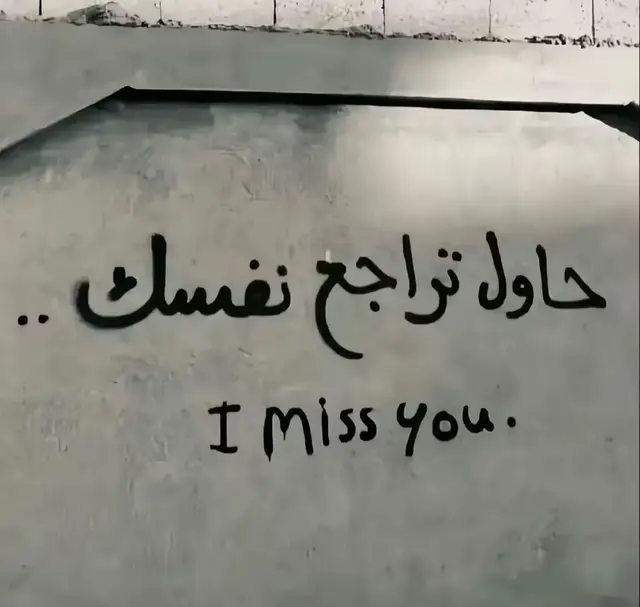 حاول تراجع نفسك ..
I miss you.